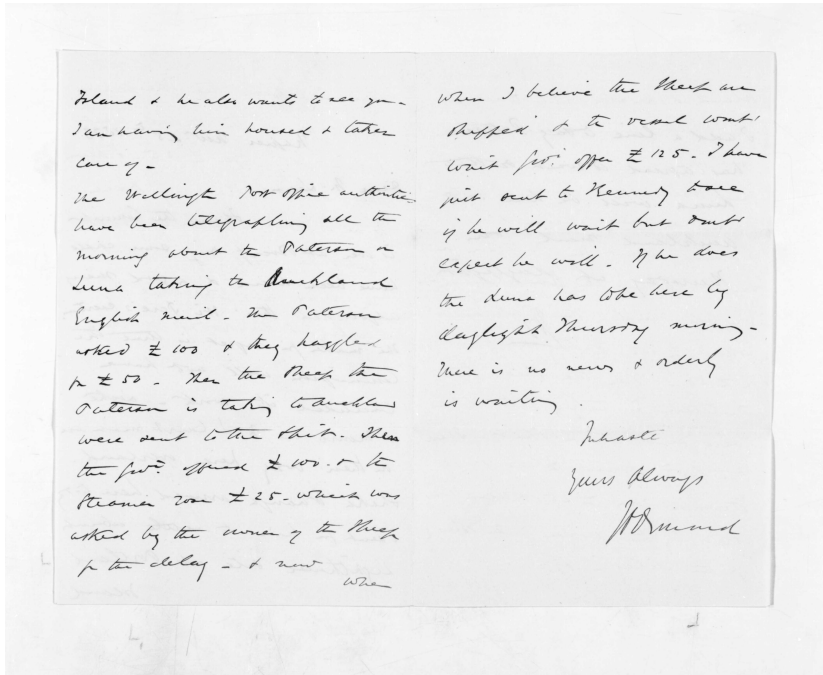 Island & he also wants to see you -
I am having him housed & taken
care of -
The Wellington Post office authorities
have been telegraphing all the
morning about the Paterson or
Luna taking the Auckland
English mail - The Paterson
asked £100 & they haggled
for £50 - Then the Sheep the
Paterson is taking to Auckland
were sent to the Spit. Then
the Govt. offered £100 & the
Steamer rose £25 - which was
asked by the owner of the Sheep
for the delay - & now
when
when I believe the Sheep are
shipped & the vessel wont
wait Govt. offer £125. I have
just sent to Kennedy to see
if he will wait but dont
expect he will. If he does
the Luna has to be here by
daylight Thursday morning -
There is no news & orderly
is waiting.
In haste
Yours Always
J D Ormond